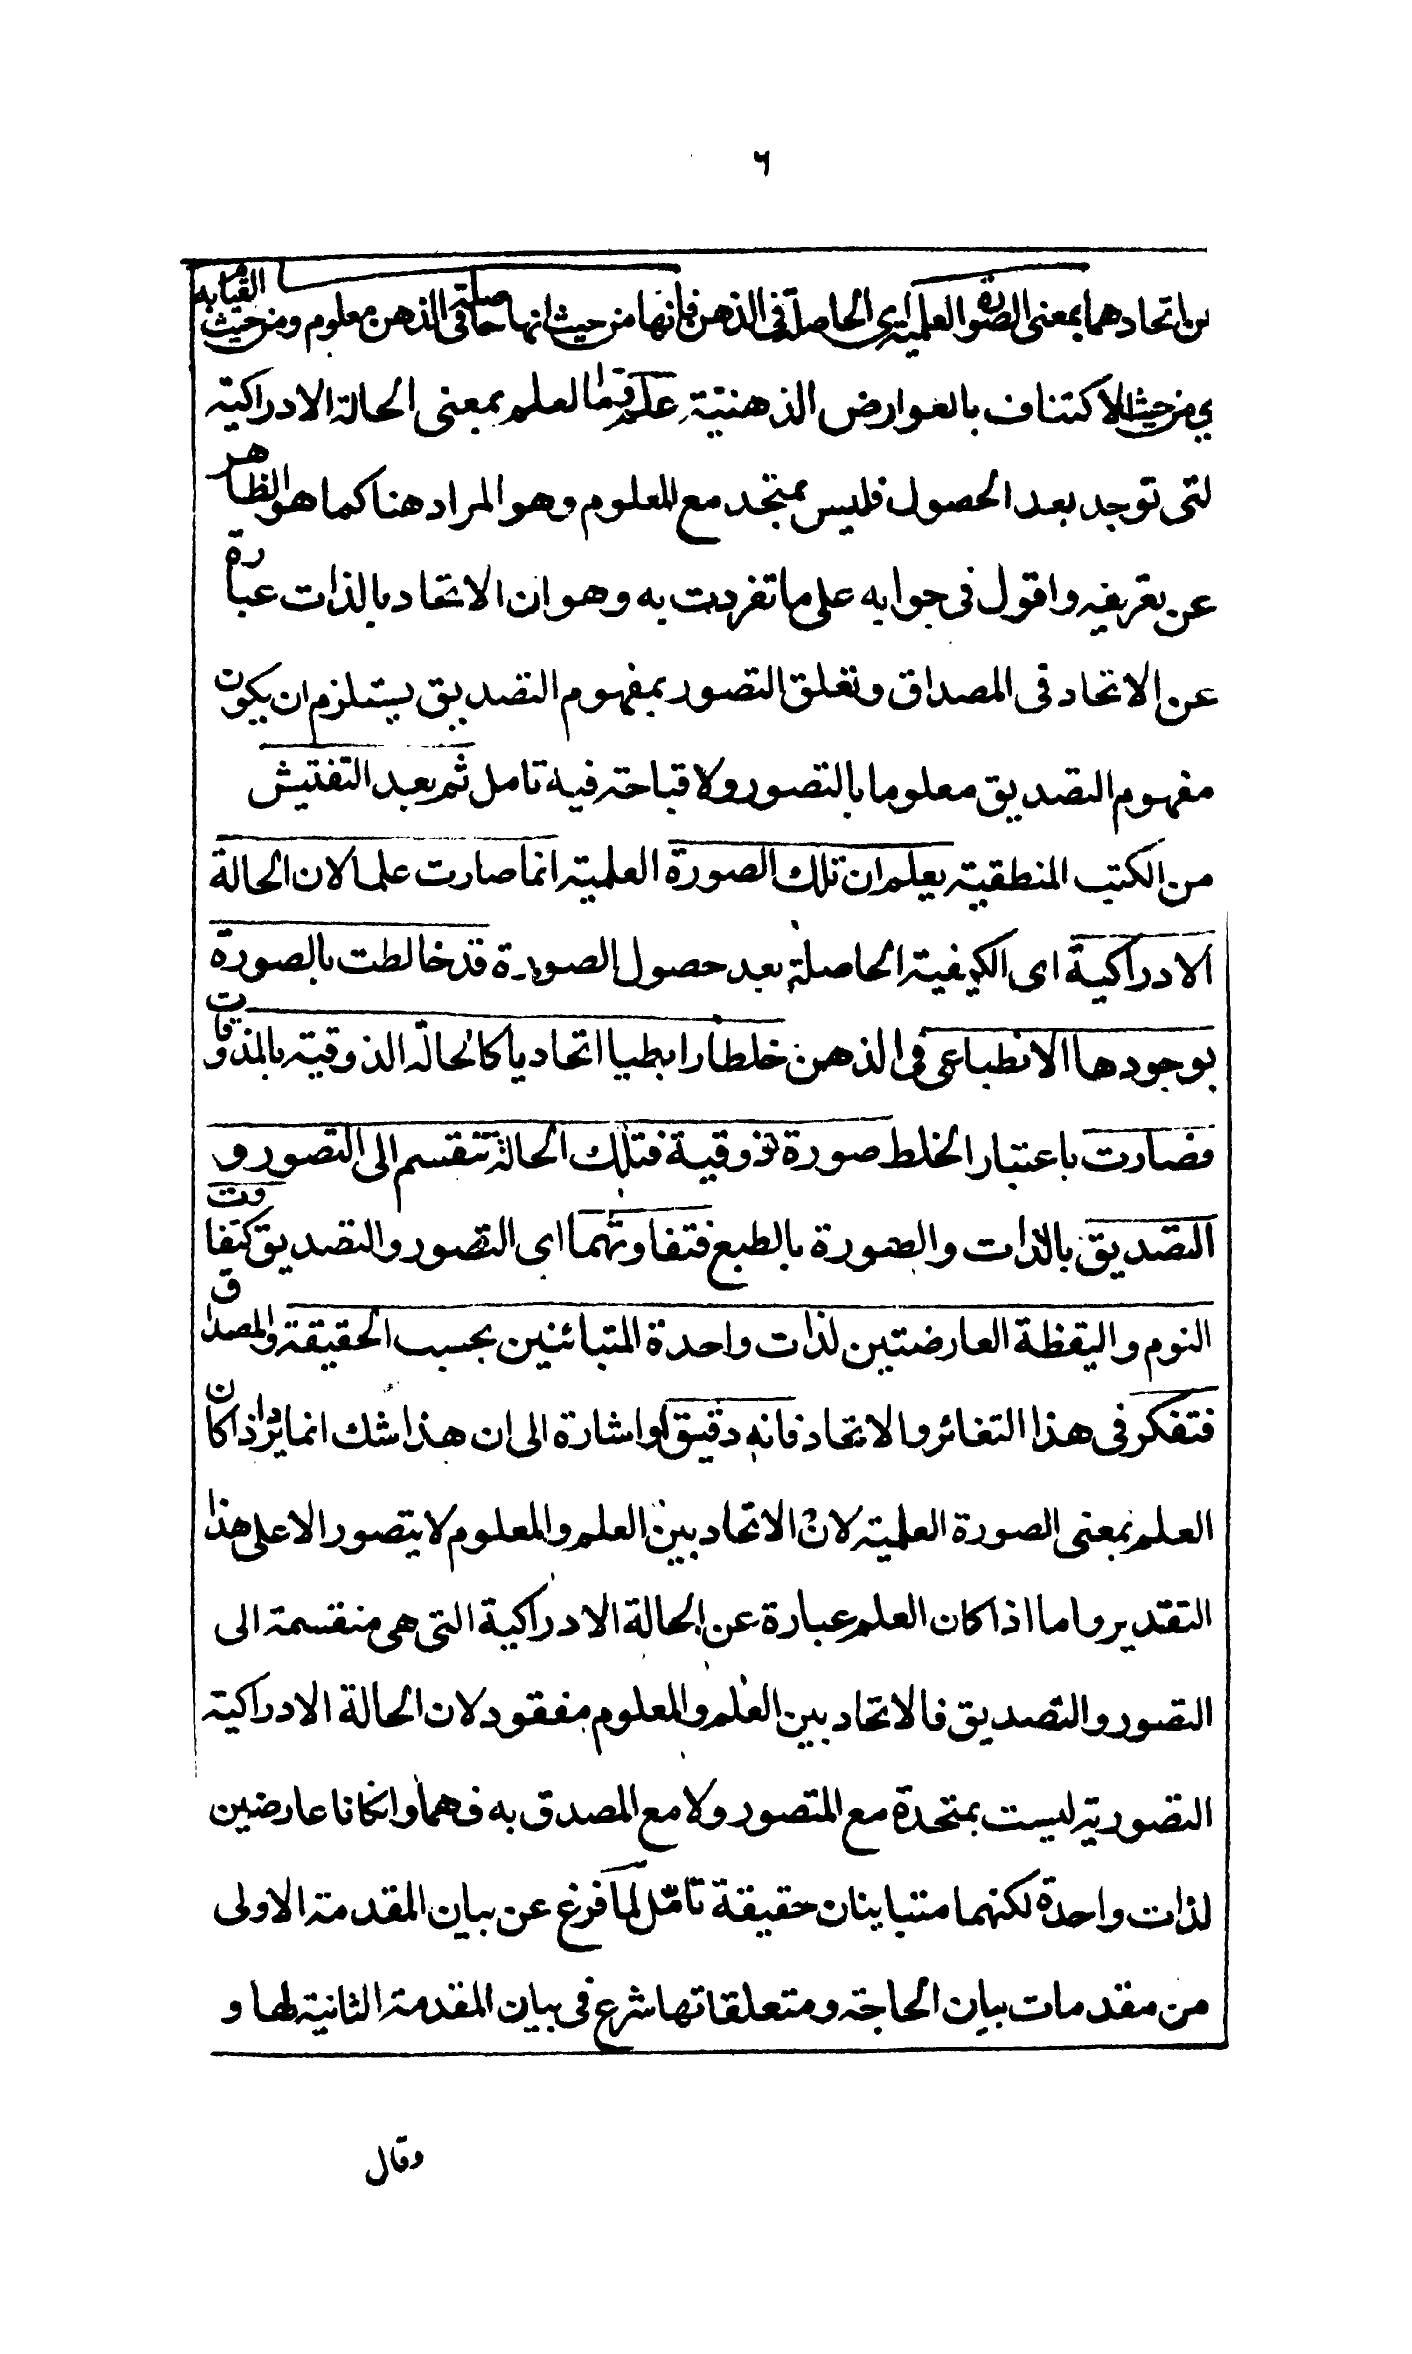 ٦
من اتحادهما بمعنى الصورة العلمية اى الحاصلة فى الذهن فانها من حيث انها حاصلة فى الذهن معلوم ومن حيث القيام به
اى من حيث الاكتناف بالعوارض الذهنية علم فما العلم بمعنى الحالة الادراكية
التى توجد بعد الحصول فليس بمتحد مع المعلوم وهو المراد هنا كما هو الظاهر
عن تعريفه واقول فى جوابه على ما تفردت به وهو ان الاتحاد بالذات عبارة
عن الاتحاد فى المصداق وتعلق التصور بمفهوم التصديق يستلزم ان يكون
مفهوم التصديق معلوما بالتصور ولا قباحة فيه تامل ثم بعد التفتيش
من الكتب المنطقية يعلم ان تلك الصورة العلمية انما صارت علما لان الحالة
الادراكية اى الكيفية الحاصلة بعد حصول الصورة قد خالطت بالصورة
بوجودها الانطباعى فى الذهن خلطا رابطيا اتحاديا كالحالة الذوقية بالمذوقات
فصارت باعتبار الخلط صورة ذوقية فتلك الحالة تنقسم الى التصور و
التصديق بالذات والصورة بالطبع فتفاوتهما اى التصور والتصديق كتفاوت
النوم واليقظة العارضتين لذات واحدة المتبائنين بحسب الحقيقة والمصداق
فتفكر فى هذا التغائر والاتحاد فانه دقيق او اشارة الى ان هذا شك انما يرد اذا كان
العلم بمعنى الصورة العلمية لان الاتحاد بين العلم والمعلوم لا يتصور الا على هذا
التقدير واما اذا كان العلم عبارة عن الحالة الادراكية التى هى منقسمة الى
التصور والتصديق فالاتحاد بين العلم والمعلوم مفقود لان الحالة الادراكية
التصورية ليست بمتحدة مع المتصور ولا مع المصدق به فهما وانكانا عارضين
لذات واحدة لكنهما متباينان حقيقة تامل لما فرغ عن بيان المقدمة الاولى
من مقدمات بيان الحاجة ومتعلقاتها شرع فى بيان المقدمة الثانية لها و
وقال